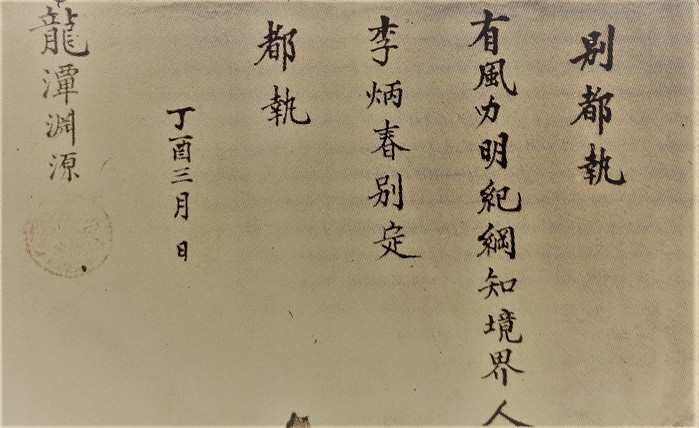 別都執
有風力明紀綱知境界人
李炳春別定
都執
丁酉三月 日
龍潭淵源